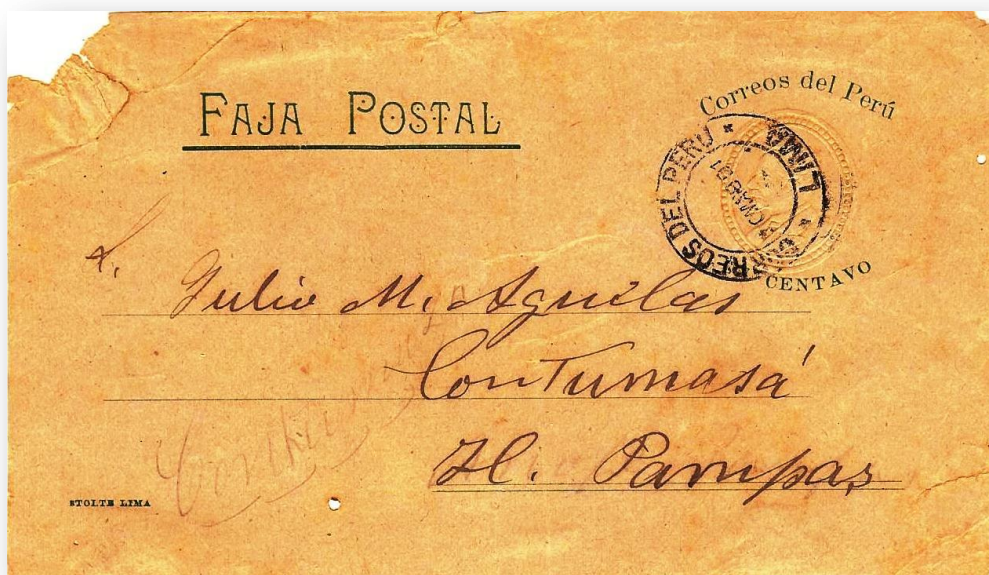 FAJA POSTAL
Correos del Perú
CORREOS DEL PERU * LIMA *
CENTAVO
Julio M. Aguilar
Contumasá
H. Pampas
STOLTE LIMA